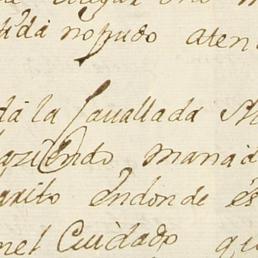 tida no pudo aten
da la Cauallada
haziendo manad
arito endonde es
nel Cuidado qu